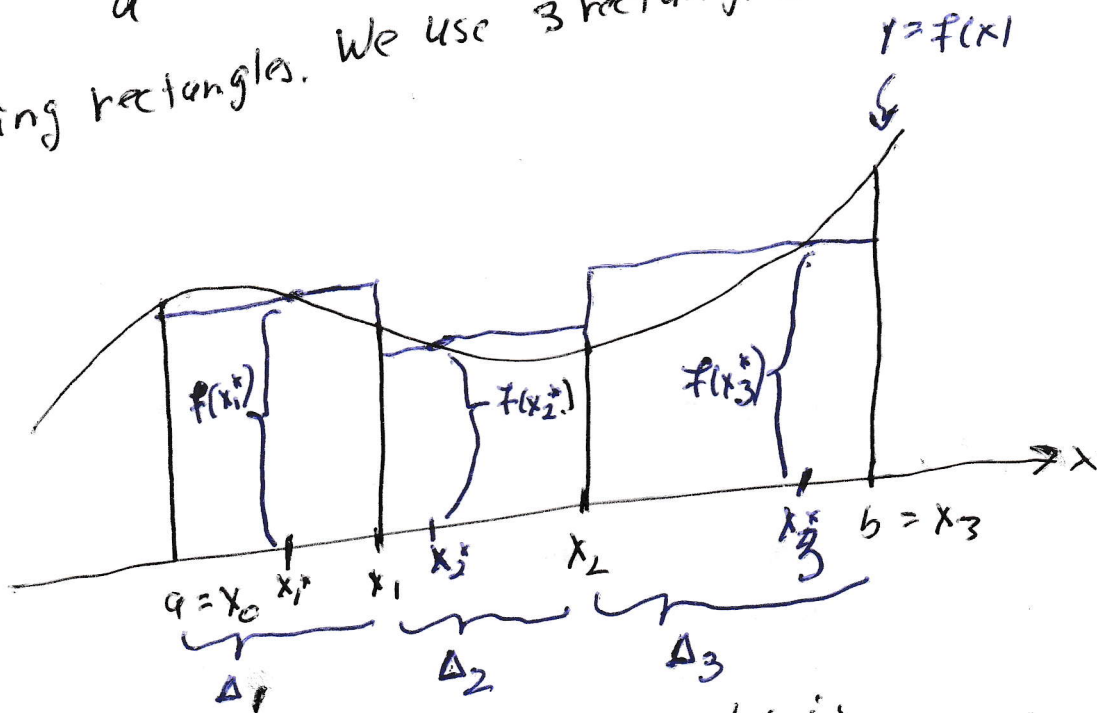 a
ing rectangles. We use 3 rectang
y = f(x)
f(x₁*)
f(x₂*)
f(x₃*)
x
a = x₀ x₁* x₁ x₂* x₂ x₃* b = x₃
Δ₁ Δ₂ Δ₃
is